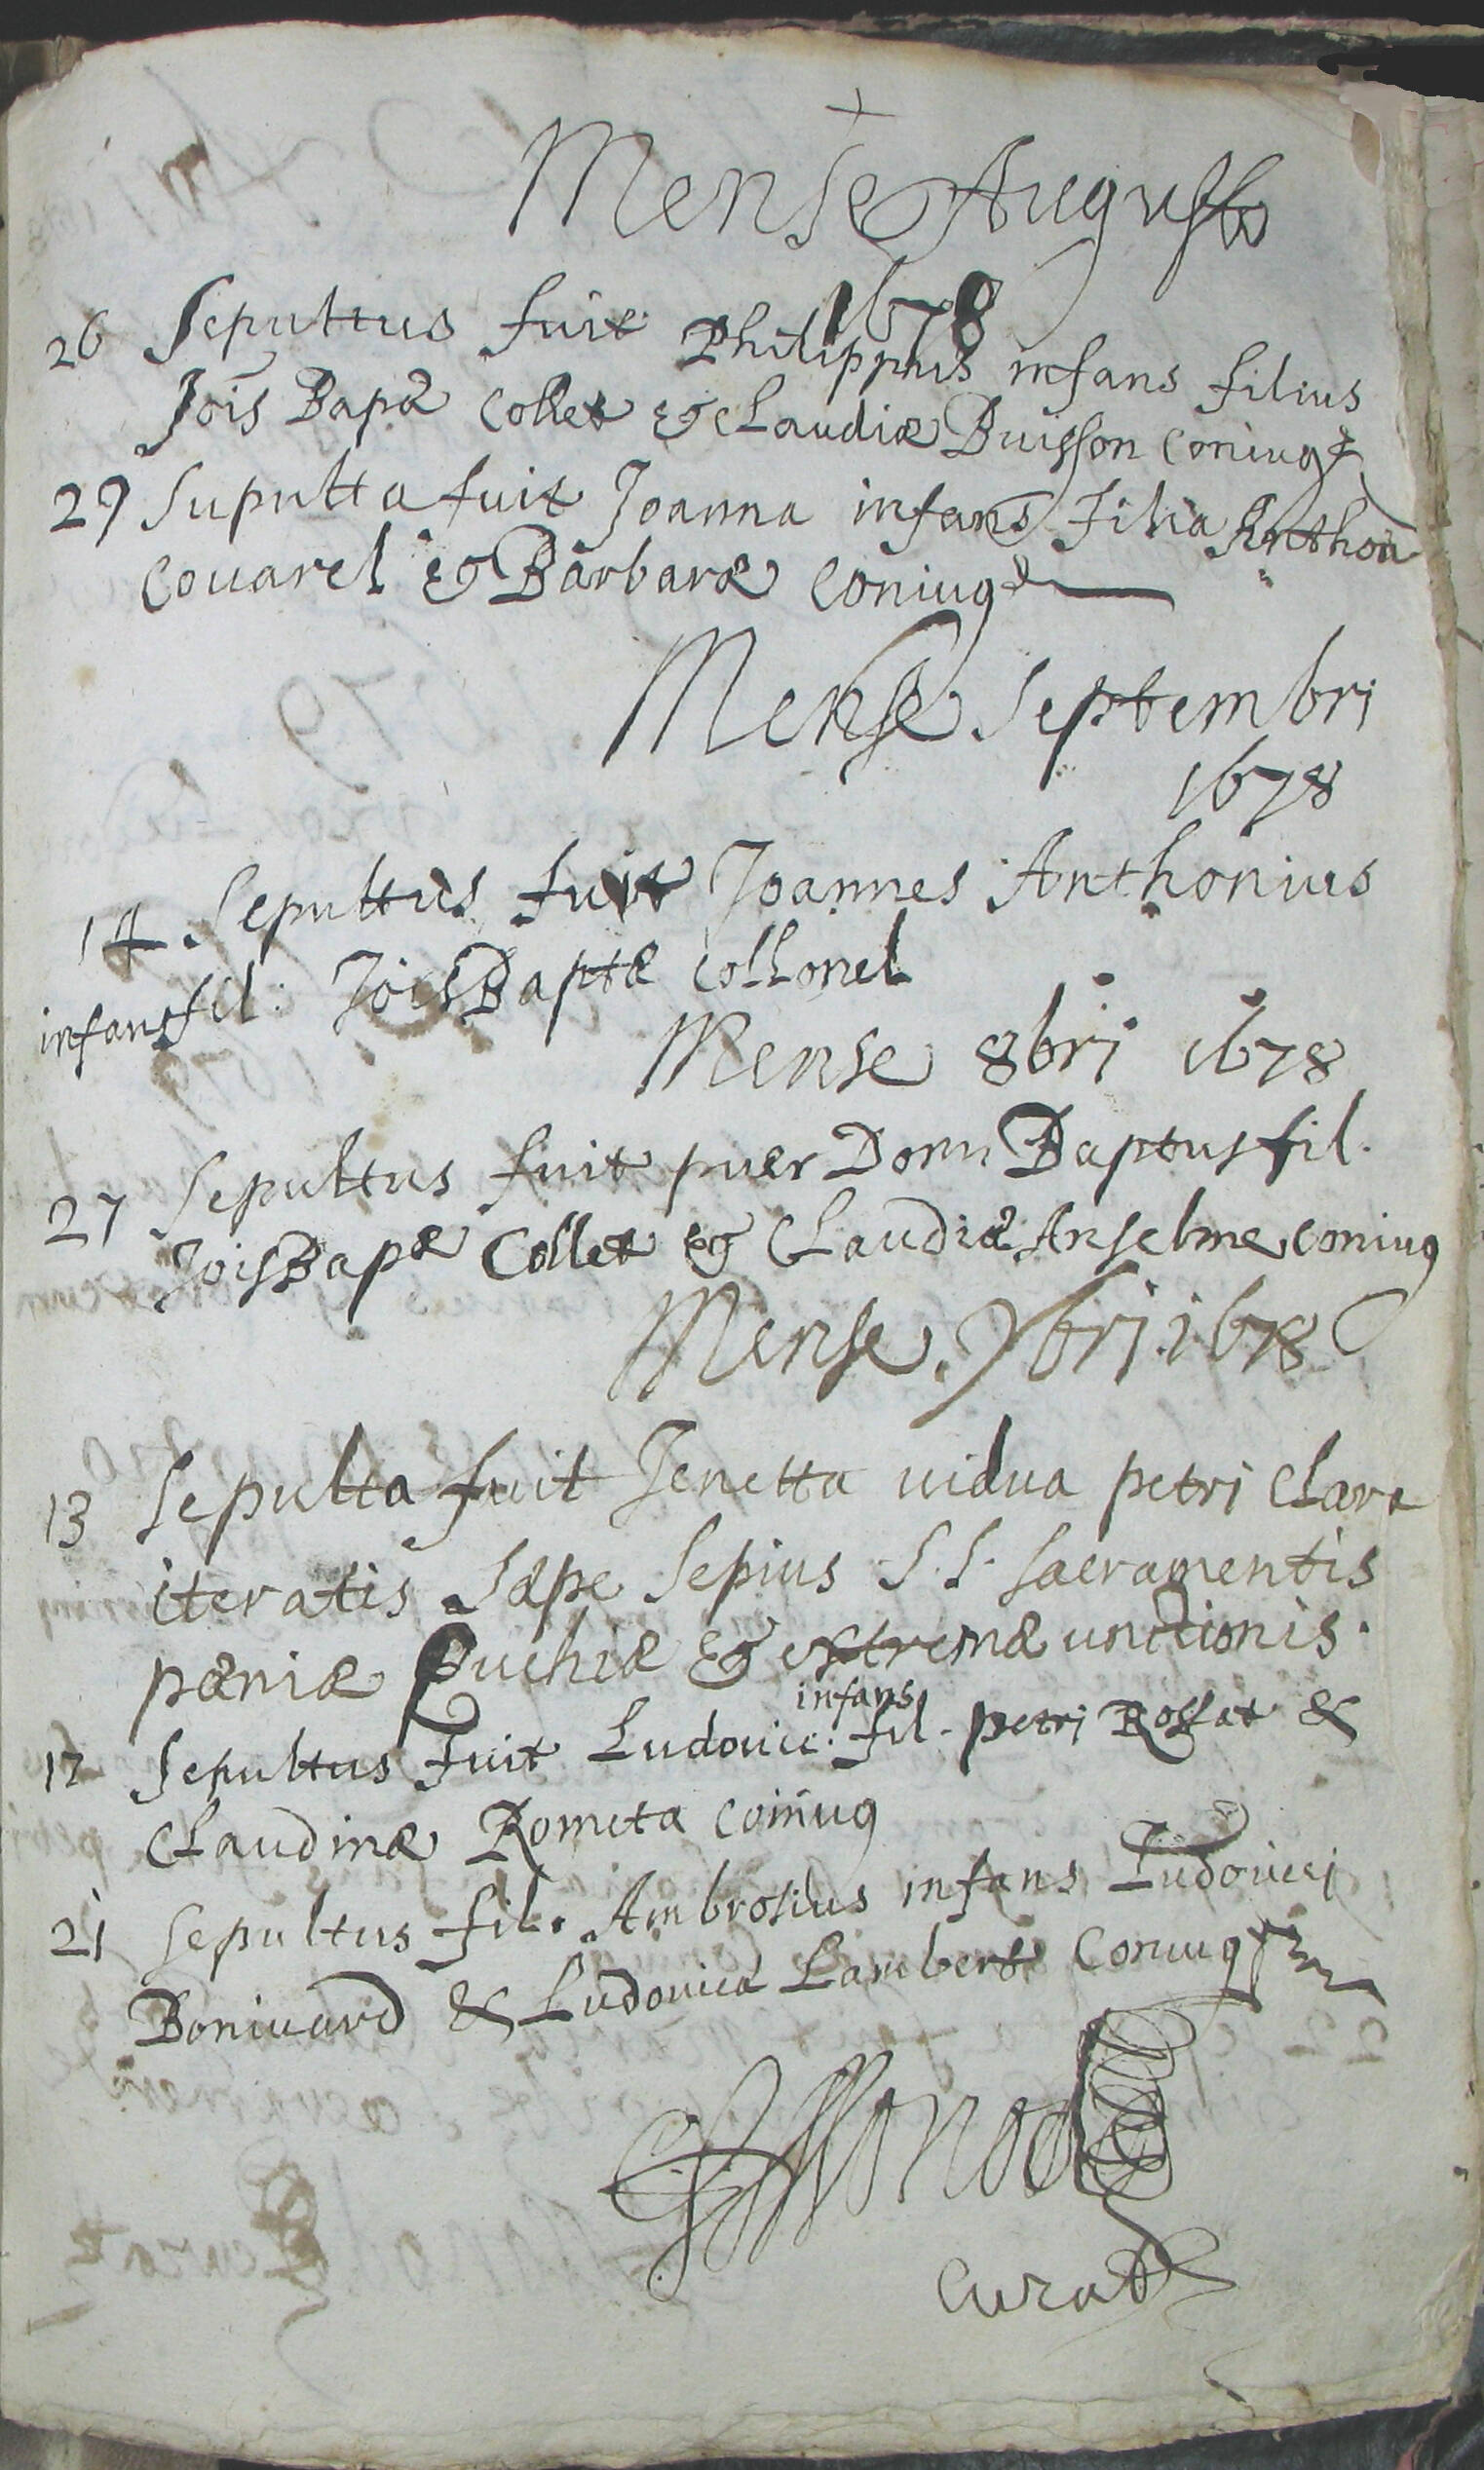 Mense Augusto
1678
26 Sepultus fuit Philippus infans filius
Jois Bapæ Collet & Claudiæ Buisson coniug
29 Supulta fuit Joanna infans filia Anthon
Couarel & Barbaræ coniug
Mense Septembri
1678
14 Sepultus fuit Joannes Anthonius
infans fil: Jois Baptæ Collonel
Mense 8bri 1678
27 Sepultus fuit puer Domi Baptus fil.
Jois Bapæ Collet & Claudiæ Anselme coniug
Mense. bri. 1678
13 Sepulta fuit Jenetta uidua petri Clare
iteratis sæpe sepius S.S. sacramentis
pæniæ Euchiæ & extremæ unctionis.
infans
17 Sepultus fuit Ludouic. fil. petri Rossat &
Claudinæ Rometa coniug
21 Sepultus fil. Ambrosius infans Ludouici
Boniuard & Ludouica Lambert Coniug
Monod
Curat